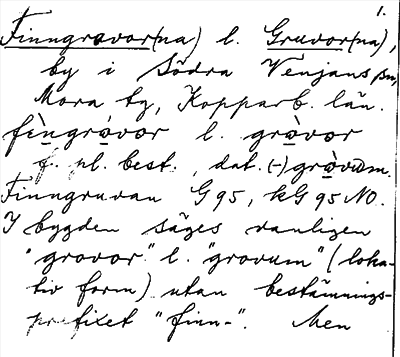 1.
Finngravor(na) l. Gruvor(na),
by i Södra Venjans sn,
Mora tg, Kopparb. län.
fὲngrávor l. gràvor
f. pl. best., dat. (-)gràvom.
Finngruvan G 95, kG 95 NO.
I bygden säges vanligen
"gravor" l. "gravum" (loka-
tiv form) utan bestämnings-
prefixet "finn-". Men